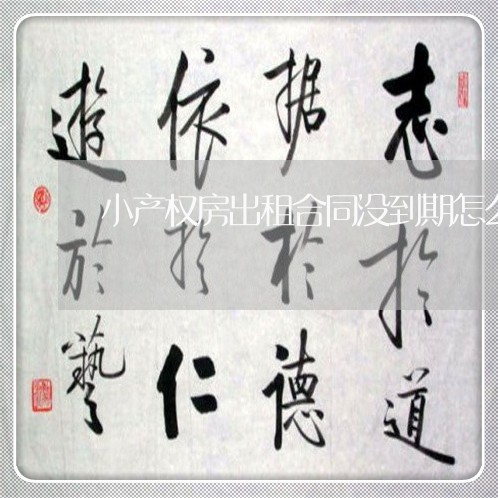 志於道
据於德
依於仁
遊於藝
小产权房出租合同没到期怎么